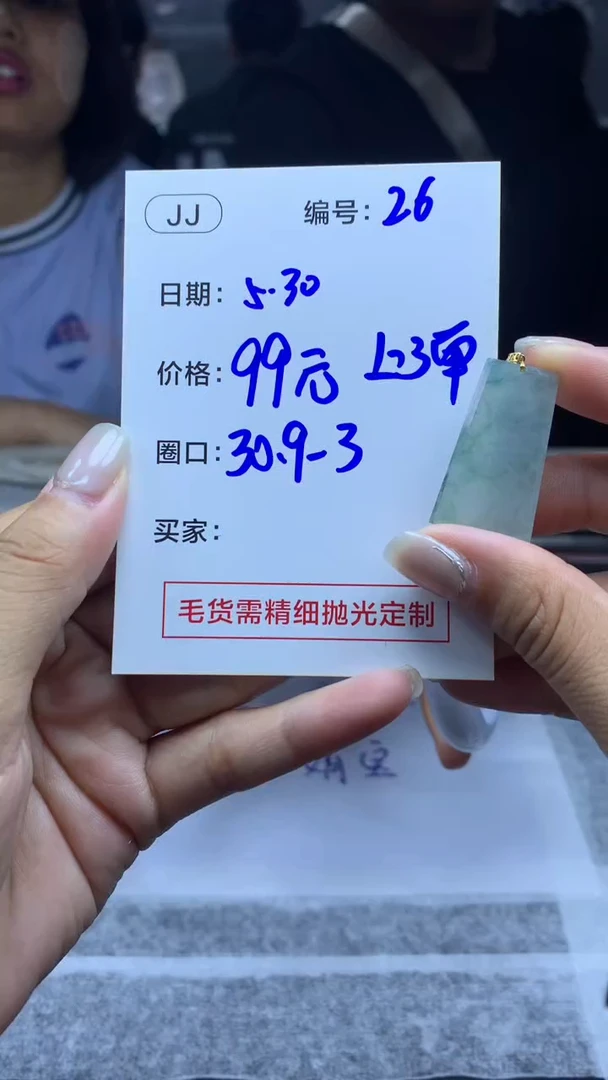 JJ 编号：26
日期：5.30
价格：99元 上3单
圈口：30.9-3
买家：
毛货需精细抛光定制